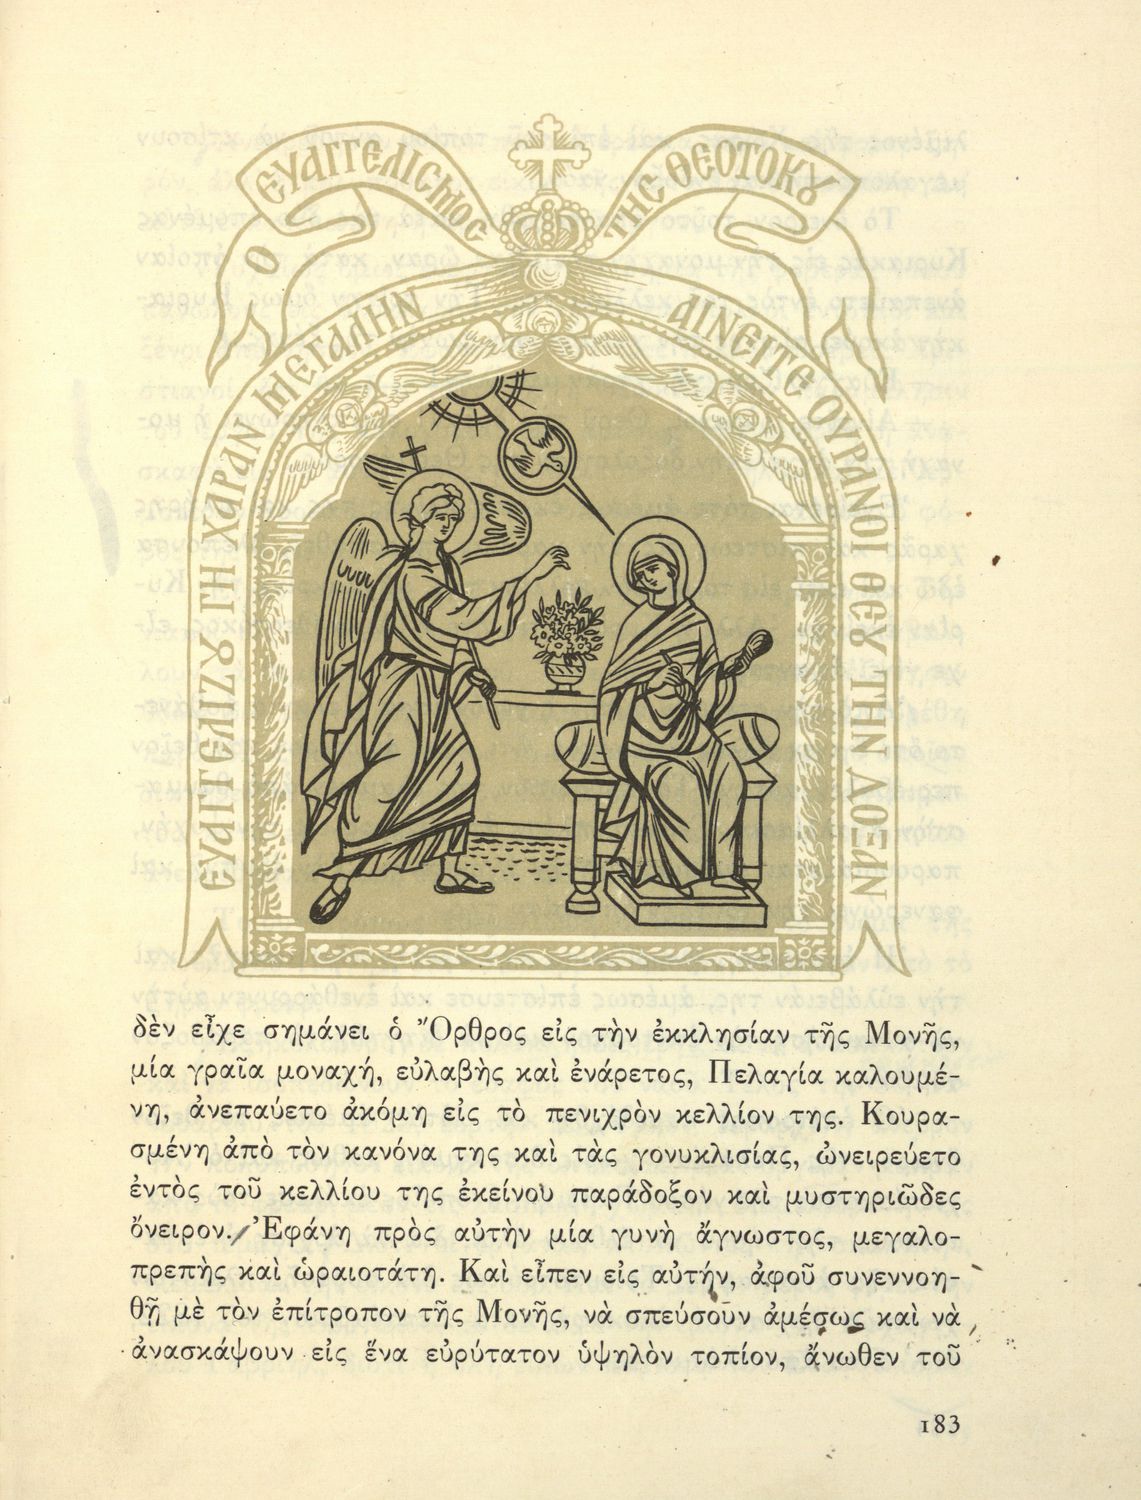 Ο ΕΥΑΓΓΕΛΙϹΜΟϹ ΤΗϹ ΘΕΟΤΟΚȢ
ΕΥΑΓΓΕΛΙΖȢ ΓΗ ΧΑΡΑΝ ΜΕΓΑΛΗΝ ΑΙΝΕΙΤΕ ΟΥΡΑΝΟΙ ΘΕȢ ΤΗΝ ΔΟΞΑΝ
δὲν εἶχε σημάνει ὁ Ὄρθρος εἰς τὴν ἐκκλησίαν τῆς Μονῆς,
μία γραῖα μοναχή, εὐλαβὴς καὶ ἐνάρετος, Πελαγία καλουμέ-
νη, ἀνεπαύετο ἀκόμη εἰς τὸ πενιχρὸν κελλίον της. Κουρα-
σμένη ἀπὸ τὸν κανόνα της καὶ τὰς γονυκλισίας, ὠνειρεύετο
ἐντὸς τοῦ κελλίου της ἐκείνου παράδοξον καὶ μυστηριῶδες
ὄνειρον. Ἐφάνη πρὸς αὐτὴν μία γυνὴ ἄγνωστος, μεγαλο-
πρεπὴς καὶ ὡραιοτάτη. Καὶ εἶπεν εἰς αὐτήν, ἀφοῦ συνεννοη-
θῇ μὲ τὸν ἐπίτροπον τῆς Μονῆς, νὰ σπεύσουν ἀμέσως καὶ νὰ
ἀνασκάψουν εἰς ἕνα εὐρύτατον ὑψηλὸν τοπίον, ἄνωθεν τοῦ
183